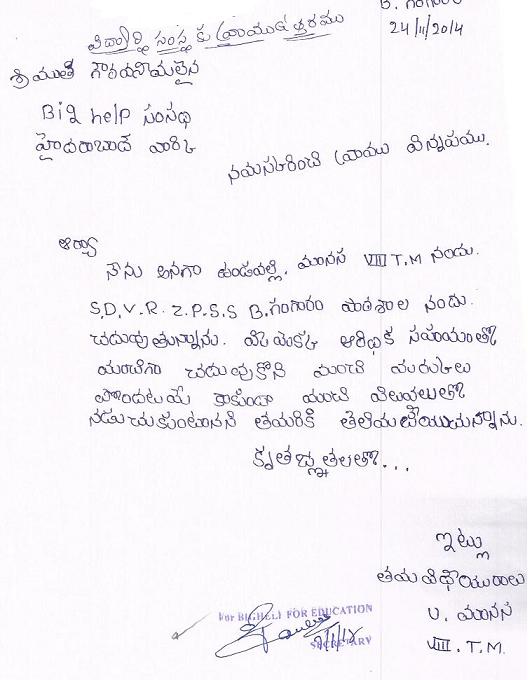 B. గంగారం
24/11/2014
విద్యార్థి సంస్థ కు వ్రాయు ఉత్తరము
శ్రీయుత గౌరవనీయులైన
Big help సంస్థ
హైదరాబాద్ వారికి
నమస్కరించి వ్రాయు విన్నపము.
ఆర్యా
నేను అనగా ఉండవల్లి. మానస VIII T.M నందు.
S.D.V.R. Z.P.S.S B.గంగారం పాఠశాల నందు.
చదువుతున్నాను. మీ యొక్క ఆర్థిక సహాయంతో
మంచిగా చదువుకొని మంచి మార్కులు
పొందటమే కాకుండా మంచి విలువలుతో
నడుచుకుంటానని తమరికి తెలియచేయుచున్నాను.
కృతజ్ఞతలతో...
ఇట్లు
తమ విధేయురాలు
U. మానస
VIII. T.M.
For BIGHELP FOR EDUCATION
SECRETARY